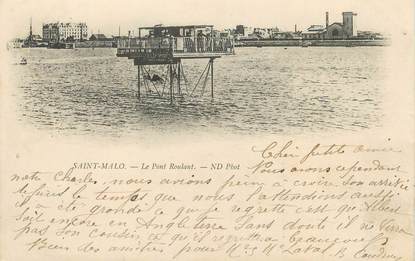 SAINT-MALO. — Le Pont Roulant. — ND Phot
Cher petite amie
Nous avons cependant
notre Charles, nous avions peine à croire son arrivée
depuis le temps que nous l'attendions aussi
il a été grondé ce que je regrette c'est que Albert
soit encore en Angleterre Sans doute il ne verra
pas son Cousin ce qu'il regrettera beaucoup
Bien des amitiés pour